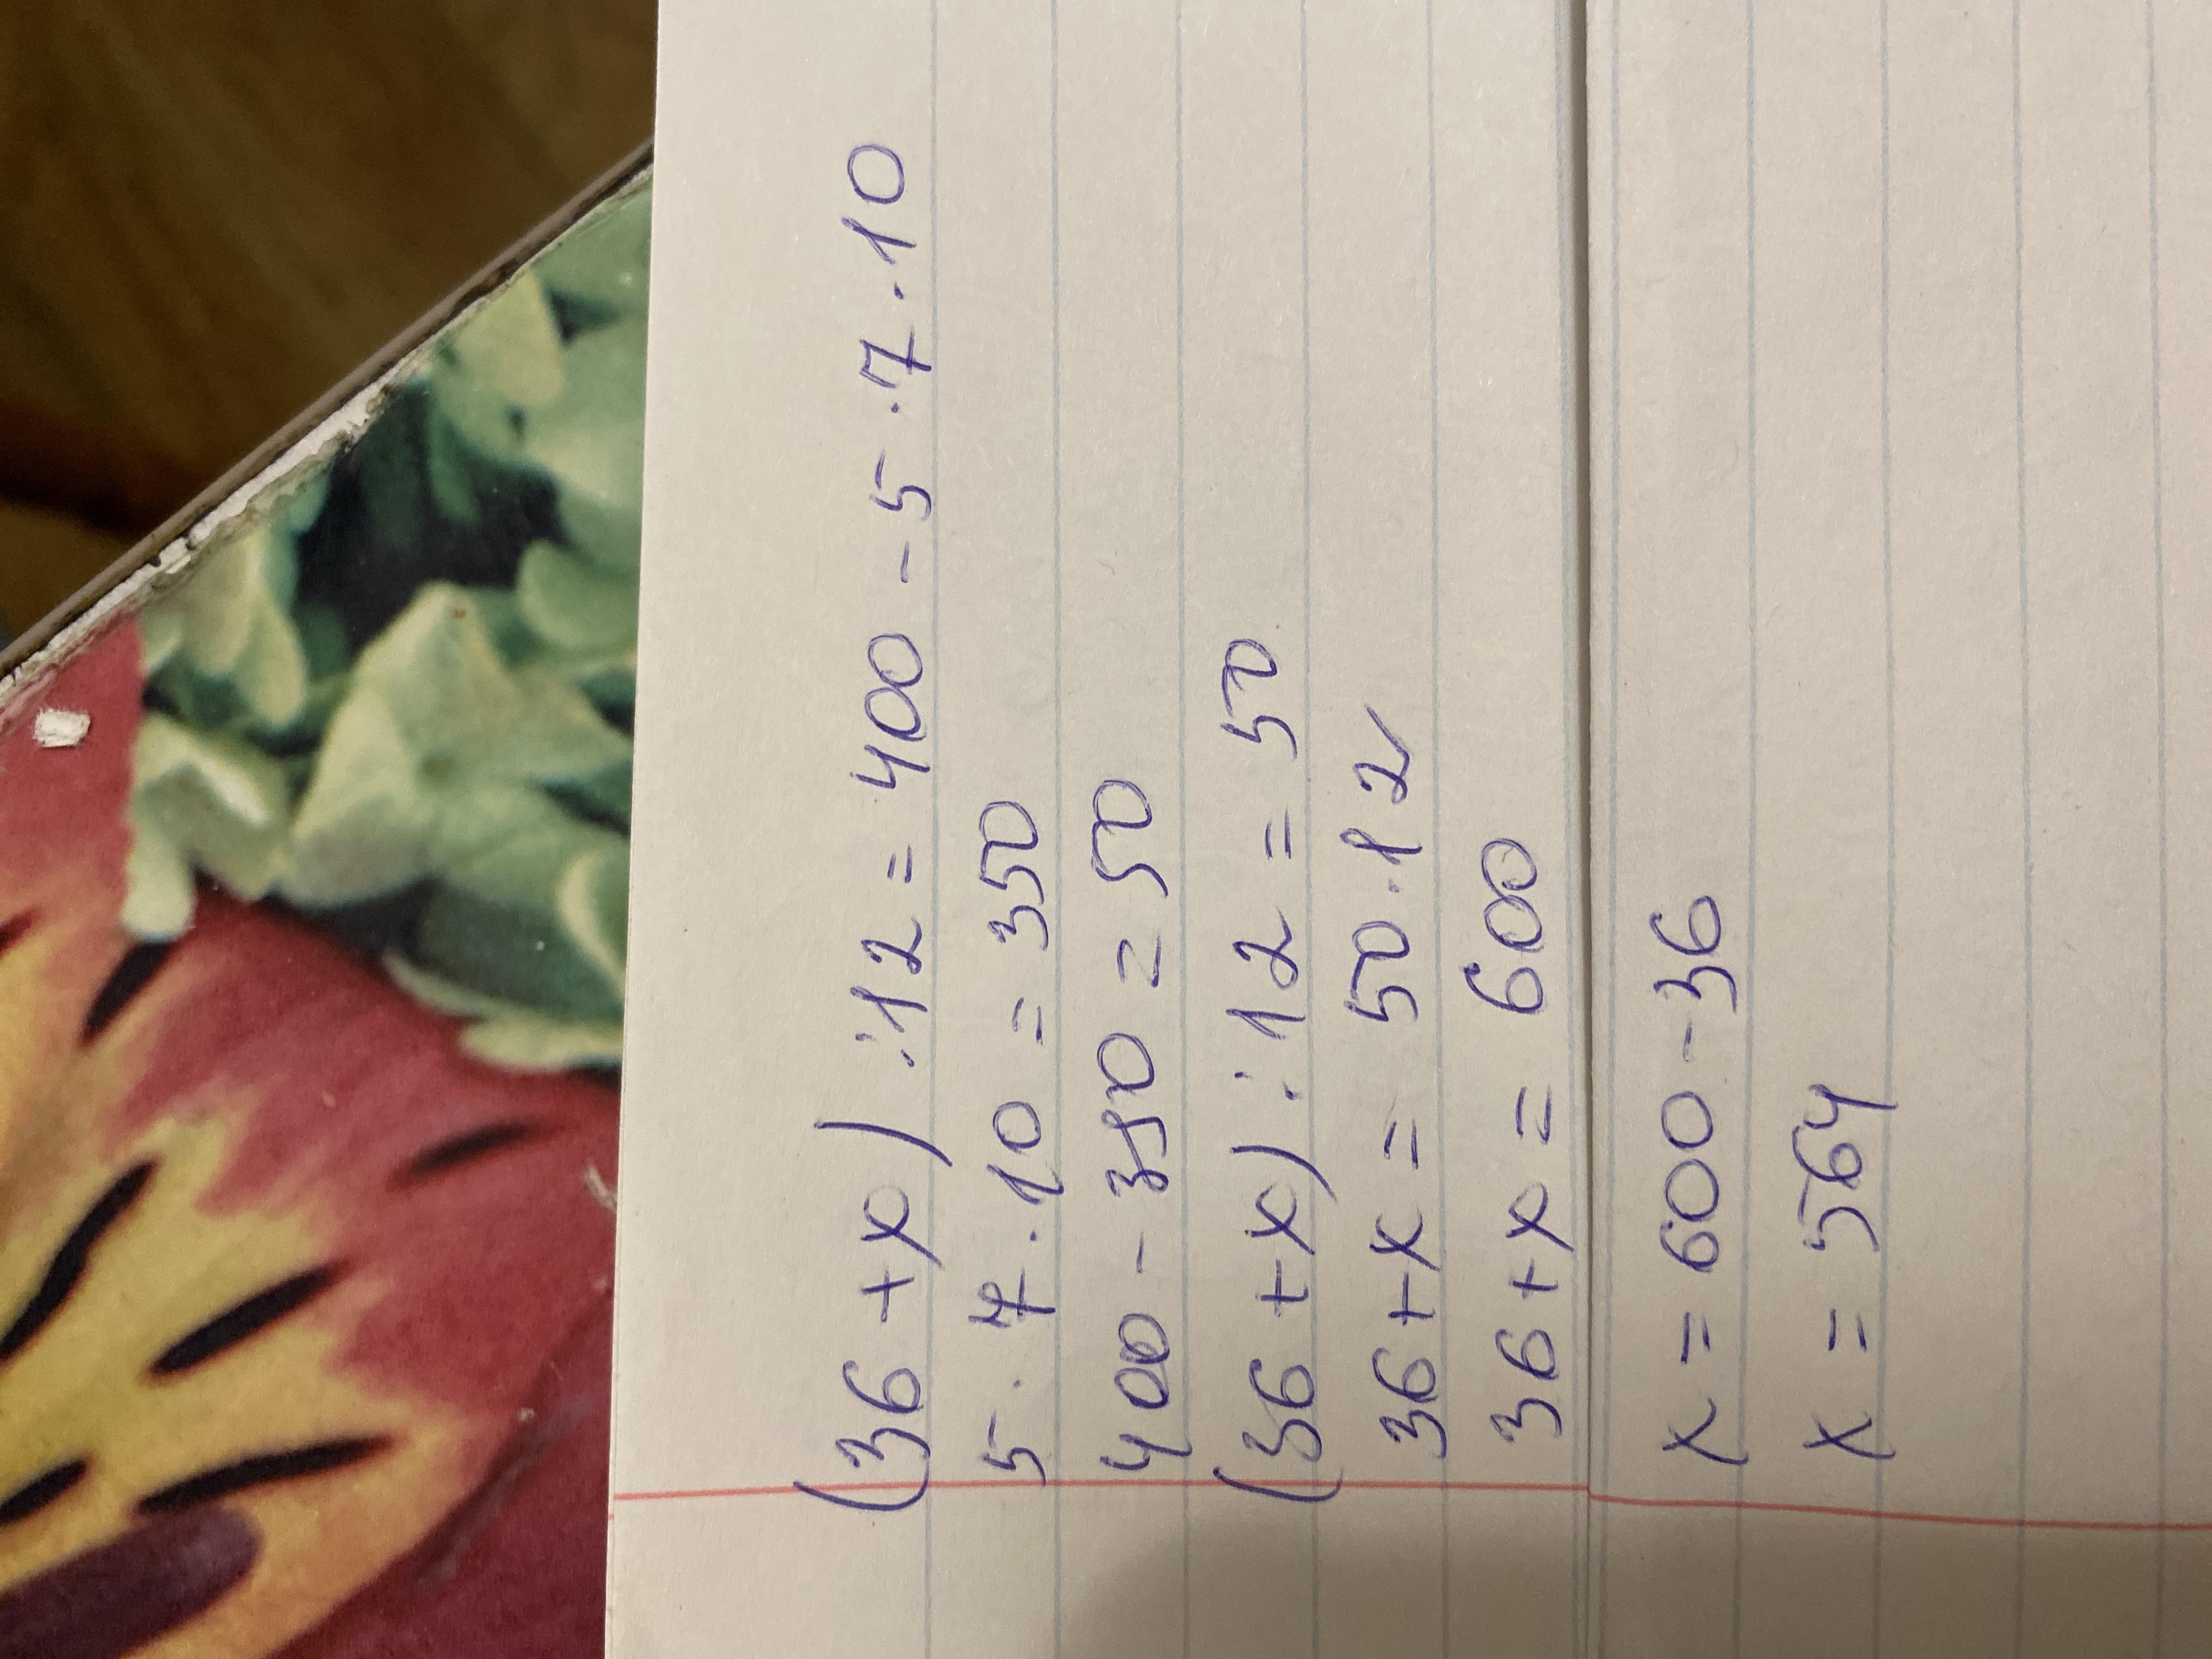 (36 + x) : 12 = 400 - 5 · 7 · 10
5 · 7 · 10 = 350
400 - 350 = 50
(36 + x) : 12 = 50
36 + x = 50 · 12
36 + x = 600
x = 600 - 36
x = 564